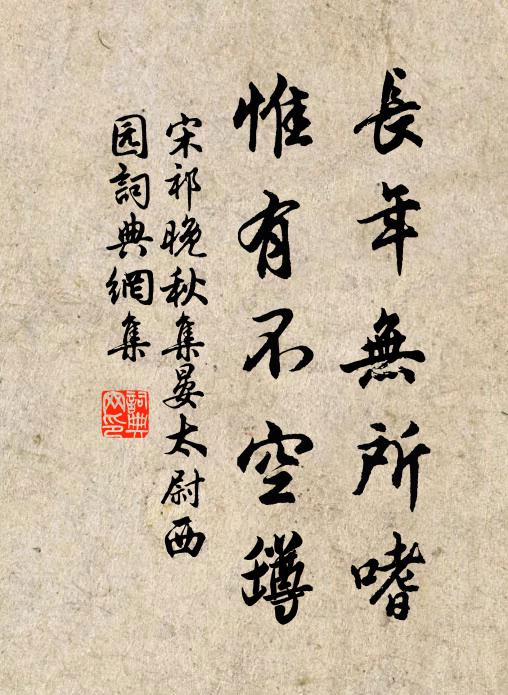 長年無所嗜
惟有不空罇
宋祁晚秋集晏太尉西
园詞典網集
詞典
网印